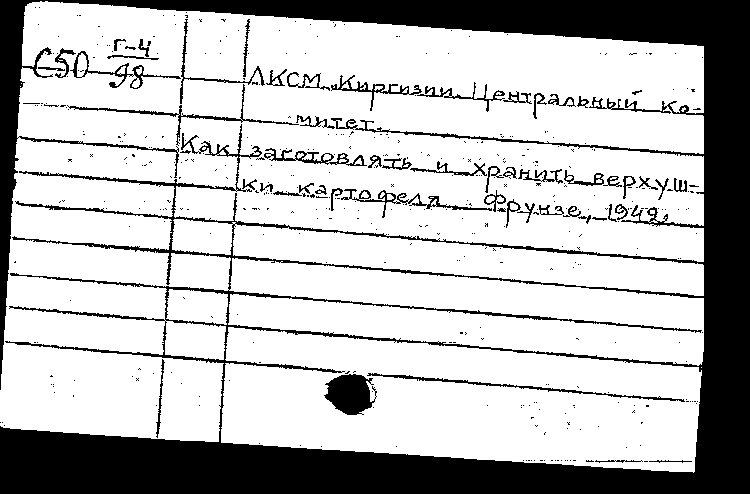 С50 Г-4/98
ЛКСМ Киргизии. Центральный ко-
митет.
Как заготовлять и хранить верхуш-
ки картофеля. Фрунзе, 1942.